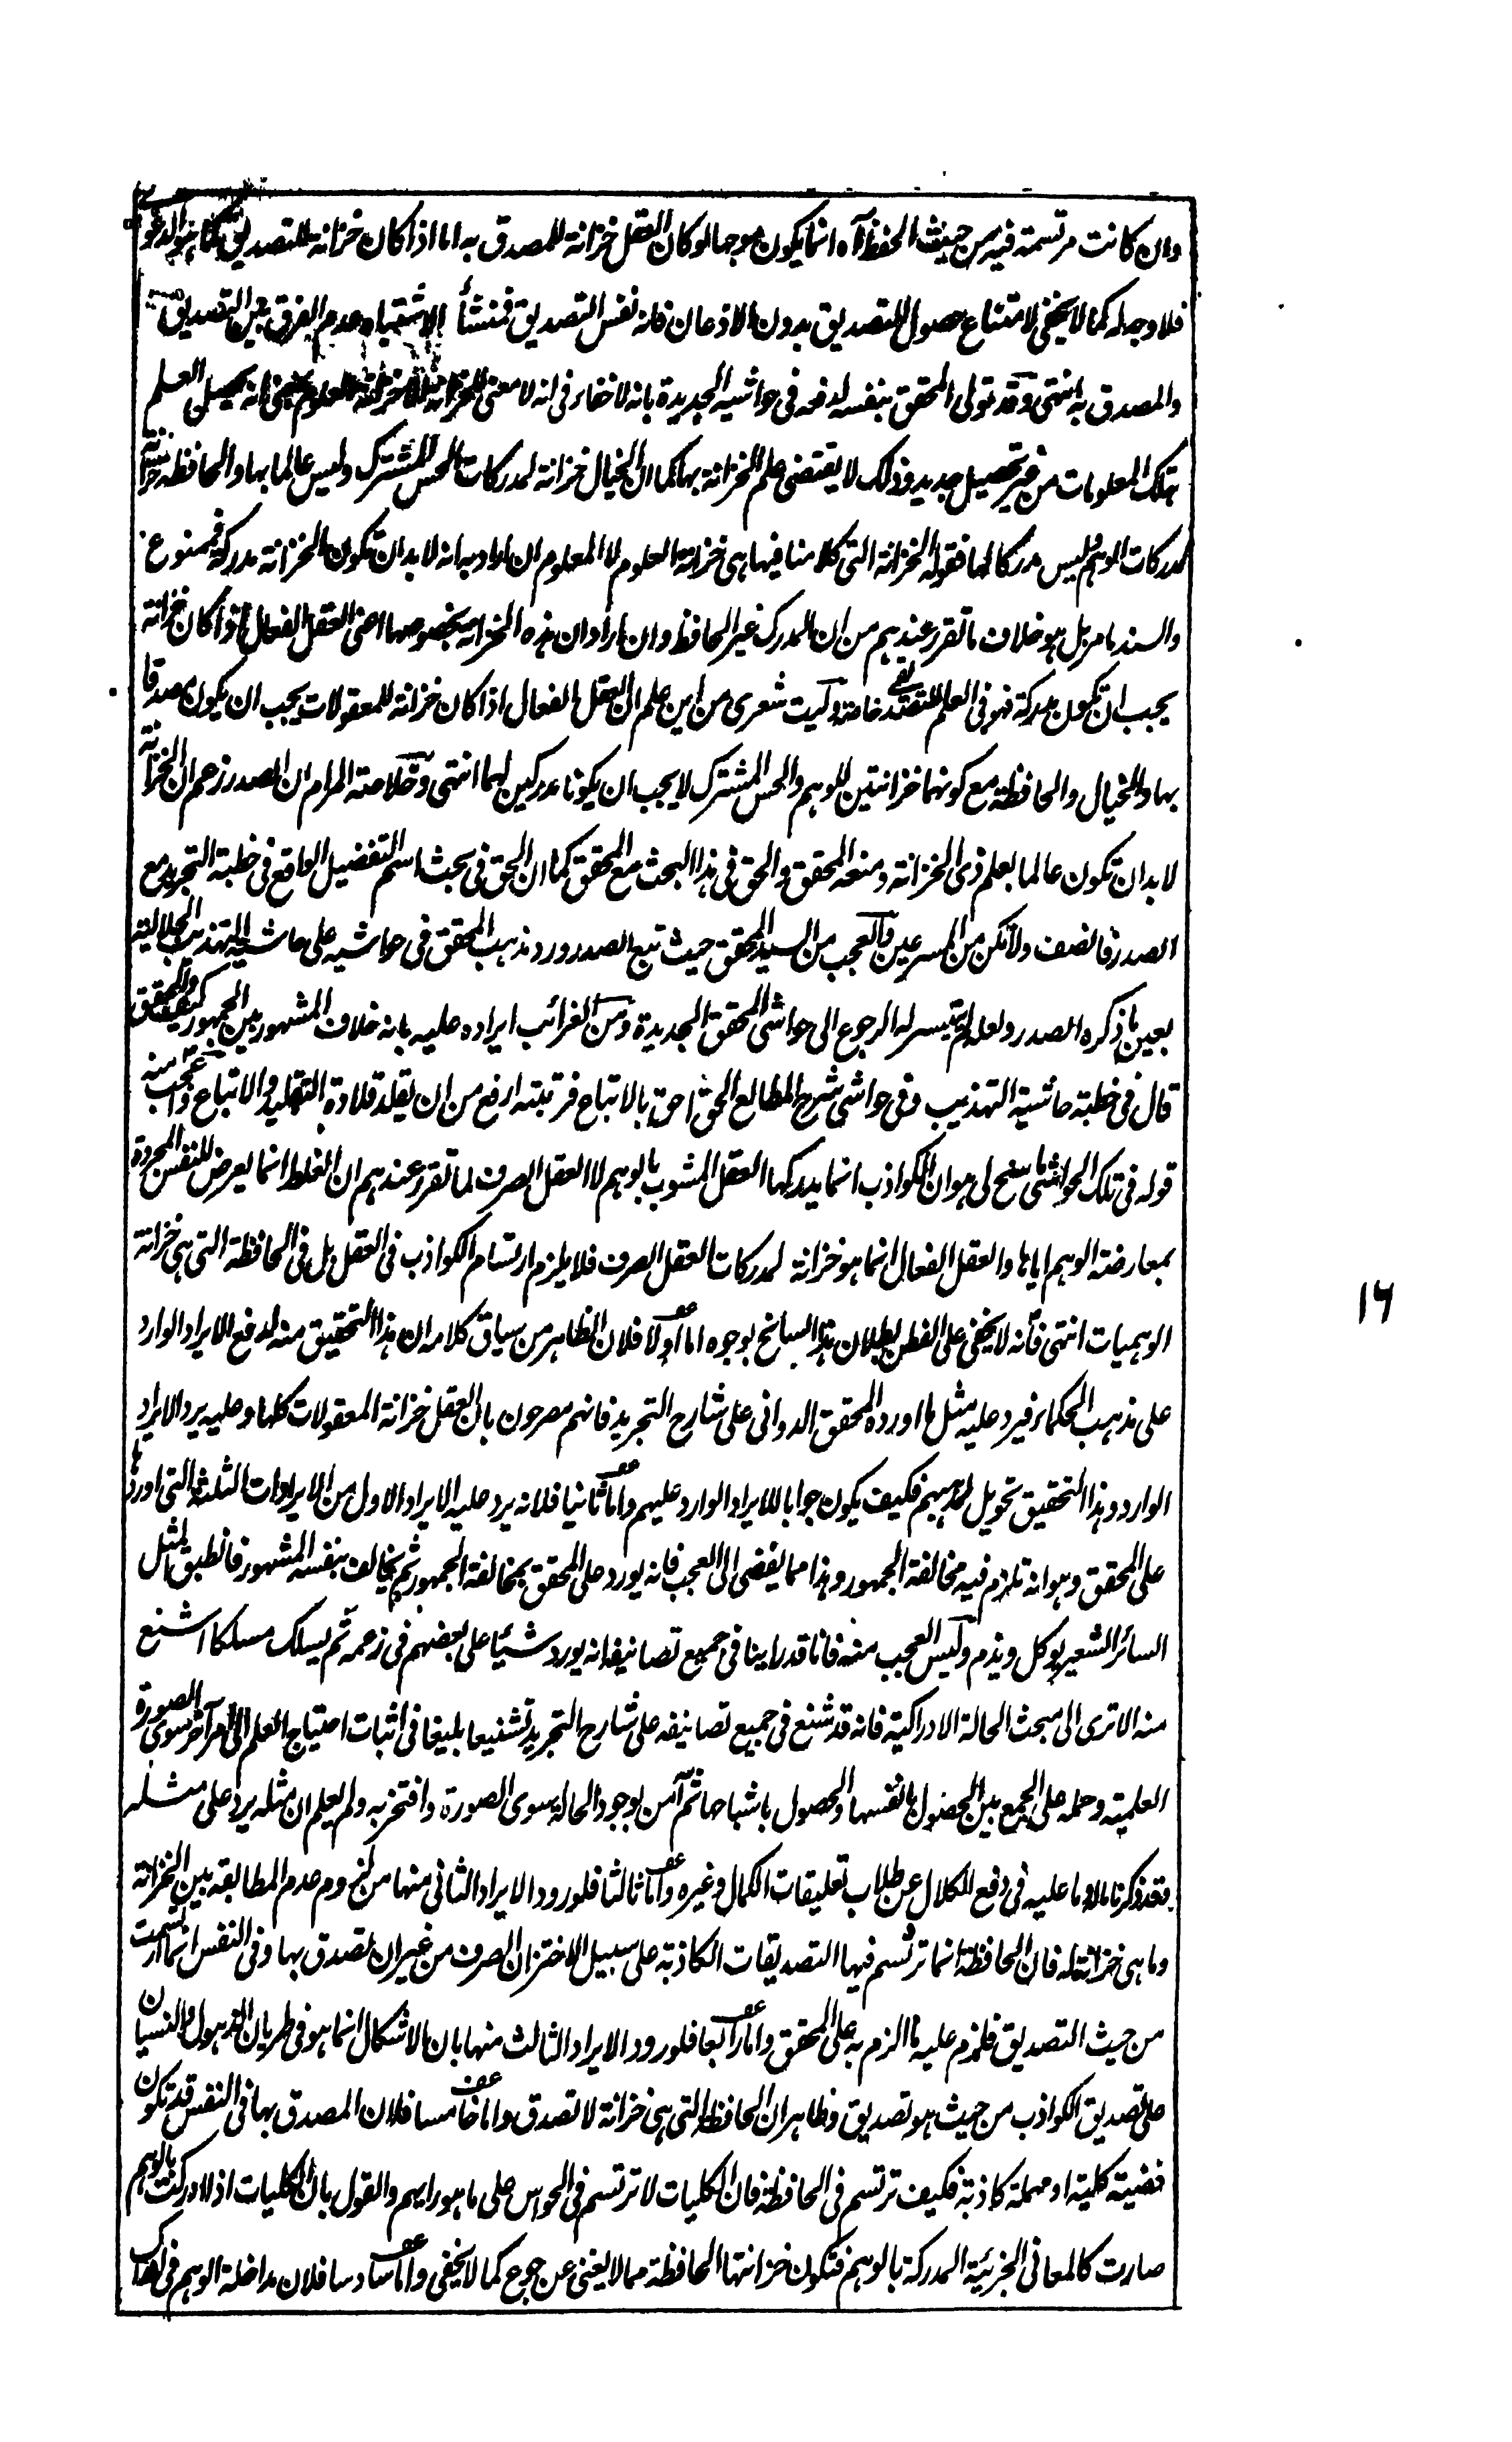 وان كانت مرتسمة فيه من حيث الحفظ آه انما يكون موجها لو كان العقل خزانة للمصدق به اما اذا كان خزانة للتصديق كما هو المدعو
فلا وجه له كما لا يخفى لامتناع حصول التصديق بدون الاذعان فانه نفس التصديق فمنشأ الاشتباه عدم الفرق بين التصديق
والمصدق به انتهى وقد تولى المحقق بنفسه لدفعه فى حواشيه الجديدة بانه لا خفاء فى انه لا معنى للخزانة يحصل العلم
بتلك المعلومات من غير تحصيل جديد وذلك لا يقتضى علم الخزانة بها كما ان الخيال خزانة لمدركات الحس المشترك وليس عالما بها والحافظة خزانة
لمدركات الوهم وليس مدركا لها فقوله الخزانة التى كلامنا فيها هى خزانة العلوم لا المعلوم ان اراد به انه لا بد ان تكون الخزانة مدركة فممنوع
والسند ما مر بل هو خلاف ما تقرر عندهم من ان المدرك غير الحافظ وان اراد ان هذه الخزانة بخصوصها اعنى العقل الفعال اذا كان خزانة
يجب ان تكون مدركة فهو فى العلم التصديقى خاصة وليت شعرى من اين علم ان العقل الفعال اذا كان خزانة للمعقولات يجب ان يكون مصدقا
بها والخيال والحافظة مع كونهما خزانتين للوهم والحس المشترك لا يجب ان يكونا مدركين لهما انتهى وخلاصة المرام ان الصدر زعم ان الخزانة
لا بد ان تكون عالما بعلم ذى الخزانة ومنعه المحقق والحق فى هذا البحث مع المحقق كما ان الحق فى بحث اسم التفضيل الواقع فى خطبة التجريد مع
الصدر فانصف ولا تكن من المسرعين والعجب من السيد المحقق حيث تبع الصدر ورد مذهب المحقق فى حواشيه على حاشية التهذيب الجلالية
بعين ما ذكره الصدر ولعله لم يتيسر له الرجوع الى حواشى المحقق الجديدة ومن الغرائب ايراده عليه بانه خلاف المشهور بين الجمهور كيف والمحقق
قال فى خطبة حاشية التهذيب وفى حواشى شرح المطالع الحق احق بالاتباع فرتبته ارفع من ان يقلد قلادة التقليد والاتباع واعجب منه
قوله فى تلك الحواشى ما سنح لى هو ان الكواذب انما يدركها العقل المشوب بالوهم لا العقل الصرف لما تقرر عندهم ان الغلط انما يعرض للنفس المجردة
بمعارضة الوهم اياها والعقل الفعال انما هو خزانة لمدركات العقل الصرف فلا يلزم ارتسام الكواذب فى العقل بل فى الحافظة التى هى خزانة
الوهميات انتهى فانه لا يخفى على الفطن بطلان هذا السانح بوجوه اما اولا فلان الظاهر من سياق كلامه ان هذا التحقيق منه لدفع الايراد الوارد
على مذهب الحكماء فيرد عليه مثل ما اورده المحقق الدوانى على شارح التجريد فانهم مصرحون بان العقل خزانة المعقولات كلها وعليه يرد الايراد
الوارد وهذا التحقيق تحويل لمذهبهم فكيف يكون جوابا للايراد الوارد عليهم واما ثانيا فلانه يرد عليه الايراد الاول من الايرادات الثلثة التى اوردها
على المحقق وهو انه تلزم فيه مخالفة الجمهور وهذا مما يفضى الى العجب فانه يورد على المحقق بمخالفة الجمهور ثم يخالف بنفسه المشهور فانطبق المثل
السائر الشعير يوكل ويذم وليس العجب منه فانا قد راينا فى جميع تصانيفه انه يورد شيئا على بعضهم فى زعمه ثم يسلك مسلكا اشنع
منه الا ترى الى مبحث الحالة الادراكية فانه قد شنع فى جميع تصانيفه على شارح التجريد تشنيعا بليغا فى اثبات احتياج العلم الى امر آخر سوى الصورة
العلمية وحمله على الجمع بين الحصول بانفسها والحصول باشباحها ثم آمن بوجود الحالة سوى الصورة وافتخر به ولم يعلم ان مثله يرد على مثله
وقد ذكرنا ماله وما عليه فى دفع الكلال عن طلاب تعليقات الكمال وغيره واما ثالثا فلورود الايراد الثانى منها من لزوم عدم المطابقة بين الخزانة
وما هى خزانة له فان الحافظة انما ترتسم فيها التصديقات الكاذبة على سبيل الاختزان الصرف من غير ان تصدق بها وفى النفس انما ارتسمت
من حيث التصديق فلزم عليه ما الزم به على المحقق واما رابعا فلورود الايراد الثالث منها بان الاشكال انما هو فى طريان الذهول والنسيان
على تصديق الكواذب من حيث هو تصديق وظاهر ان الحافظة التى هى خزانة لا تصدق واما خامسا فلان المصدق بها فى النفس قد تكون
قضية كلية او مهملة كاذبة فكيف ترتسم فى الحافظة فان الكليات لا ترتسم فى الحواس على ما هو رايهم والقول بان الكليات اذا ادركت بالوهم
صارت كالمعانى الجزئية المدركة بالوهم فتكون خزانتها الحافظة مما لا يغنى عن جوع كما لا يخفى واما سادسا فلان مداخلة الوهم فى ادراك
١٦